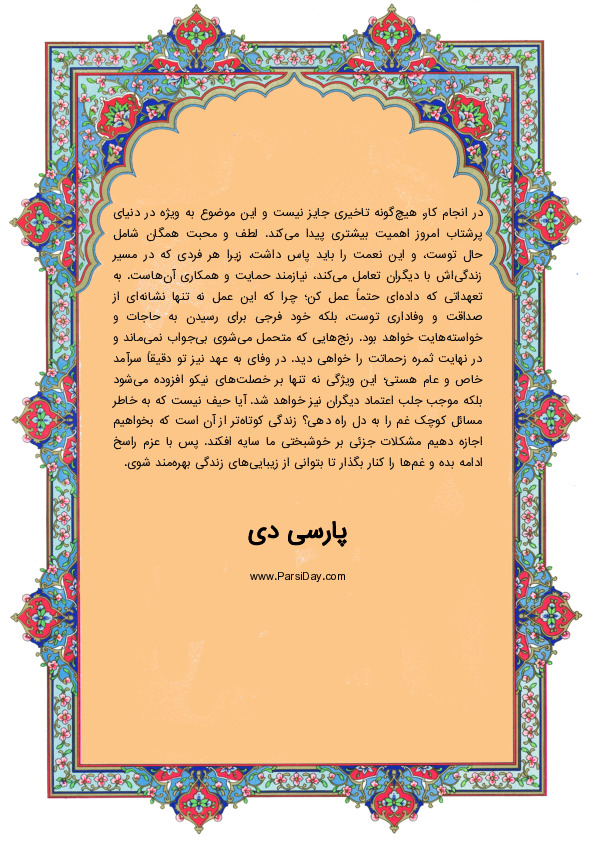 در انجام کار، هیچ‌گونه تاخیری جایز نیست و این موضوع به ویژه در دنیای
پرشتاب امروز اهمیت بیشتری پیدا می‌کند. لطف و محبت همگان شامل
حال توست، و این نعمت را باید پاس داشت، زیرا هر فردی که در مسیر
زندگی‌اش با دیگران تعامل می‌کند، نیازمند حمایت و همکاری آن‌هاست. به
تعهداتی که داده‌ای حتماً عمل کن؛ چرا که این عمل نه تنها نشانه‌ای از
صداقت و وفاداری توست، بلکه خود فرجی برای رسیدن به حاجات و
خواسته‌هایت خواهد بود. رنج‌هایی که متحمل می‌شوی بی‌جواب نمی‌ماند و
در نهایت ثمره زحماتت را خواهی دید. در وفای به عهد نیز تو دقیقاً سرآمد
خاص و عام هستی؛ این ویژگی نه تنها بر خصلت‌های نیکو افزوده می‌شود
بلکه موجب جلب اعتماد دیگران نیز خواهد شد. آیا حیف نیست که به خاطر
مسائل کوچک غم را به دل راه دهی؟ زندگی کوتاه‌تر از آن است که بخواهیم
اجازه دهیم مشکلات جزئی بر خوشبختی ما سایه افکند. پس با عزم راسخ
ادامه بده و غم‌ها را کنار بگذار تا بتوانی از زیبایی‌های زندگی بهره‌مند شوی.
پارسی دی
www.ParsiDay.com